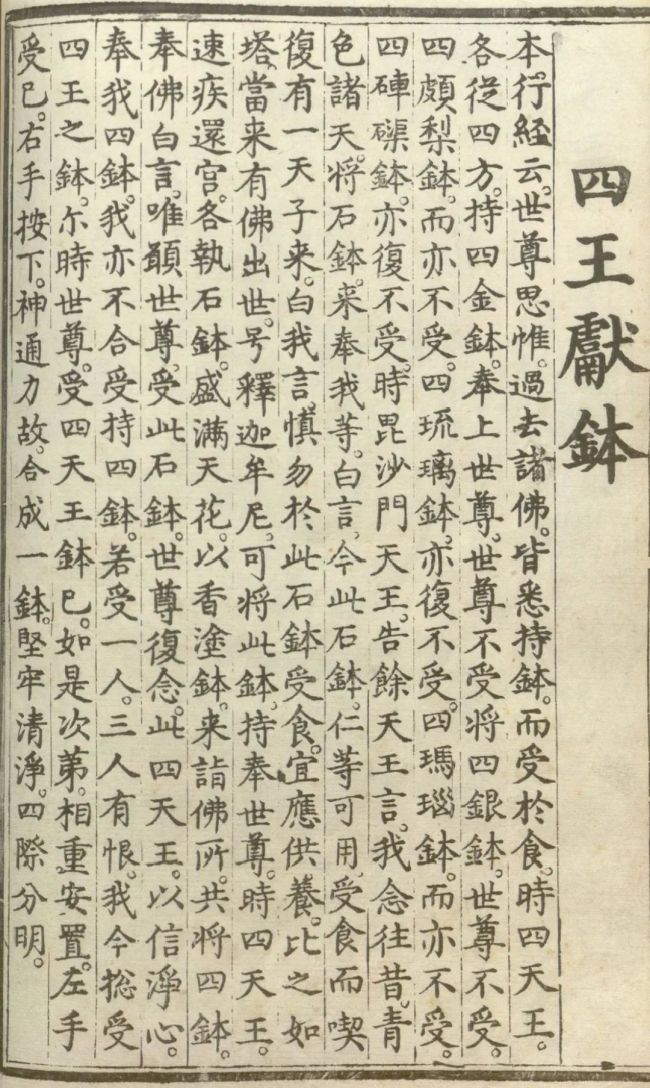 四王獻鉢
本。行經云。世尊思惟。過去諸佛。皆悉持鉢。而受於食。時四天王。
各從四方。持四金鉢。奉上世尊。世尊不受。将四銀鉢。世尊不受。
四頗梨鉢。而亦不受。四琉璃鉢。亦復不受。四瑪瑙鉢。而亦不受。
四硨磲鉢。亦復不受。時毘沙門天王。告餘天王言。我念往昔。青
色諸天。将石鉢。来奉我等。白言。今此石鉢。仁等可用。受食而喫
復有一天子来。白我言。慎勿於此石鉢受食。宜應供養。比之如
塔。當来有佛出世。号釋迦牟尼。可将此鉢。持奉世尊。時四天王。
速疾還宫。各執石鉢。盛滿天花。以香塗鉢。来詣佛所。共将四鉢。
奉佛白言。唯願世尊。受此石鉢。世尊復念。此四天王。以信淨心。
奉我四鉢。我亦不合受持四鉢。若受一人。三人有恨。我今捴受
四王之鉢。尔時世尊。受四天王鉢已。如是次苐。相重安置。左手
受已。右手按下。神通力故。合成一鉢。堅牢清淨。四際分明。